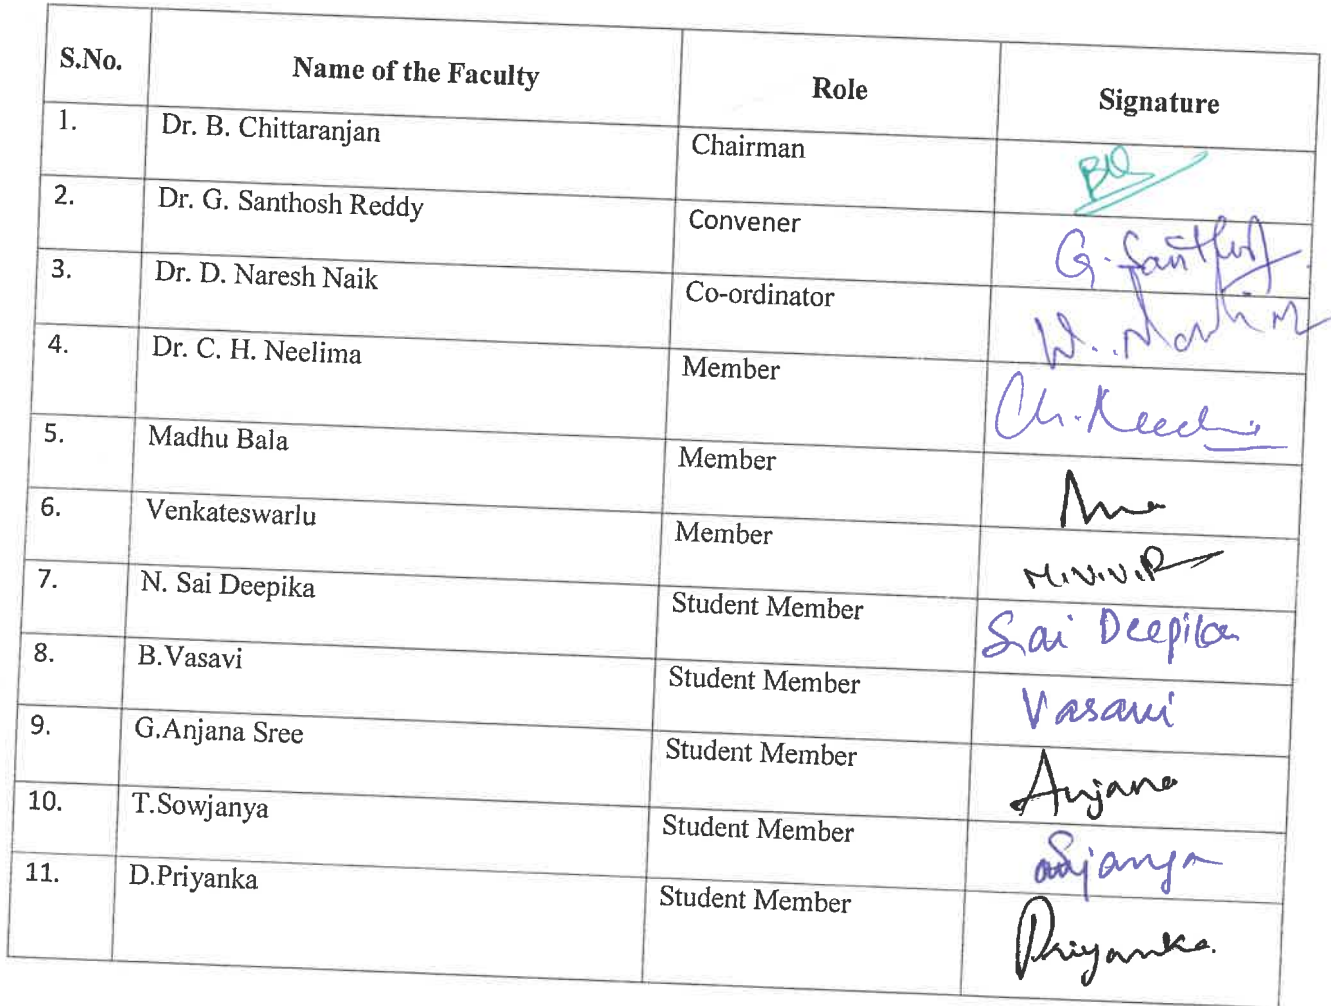 S.No. Name of the Faculty Role Signature
1. Dr. B. Chittaranjan Chairman
2. Dr. G. Santhosh Reddy Convener G. Santhosh
3. Dr. D. Naresh Naik Co-ordinator
4. Dr. C. H. Neelima Member Ch.
5. Madhu Bala Member
6. Venkateswarlu Member M.V.V.
7. N. Sai Deepika Student Member Sai Deepika
8. B.Vasavi Student Member Vasavi
9. G.Anjana Sree Student Member Anjana
10. T.Sowjanya Student Member
11. D.Priyanka Student Member Priyanka.